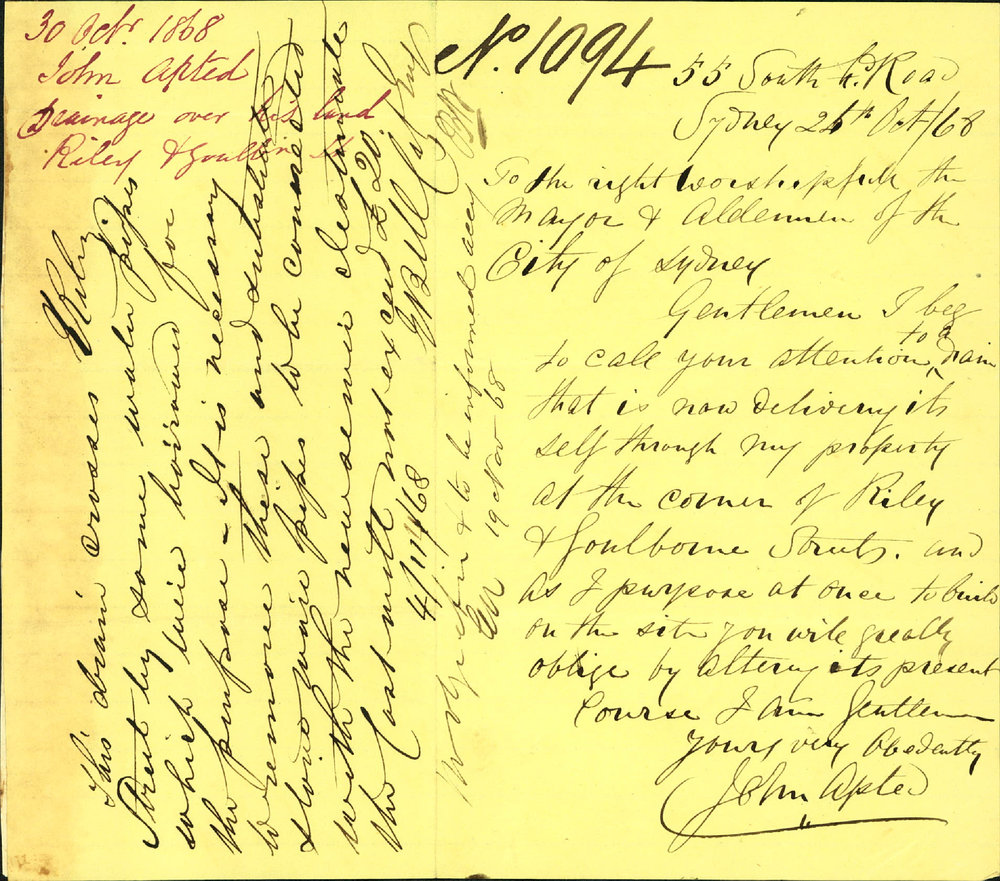 30 Octr. 1868
John Apted
Drainage over his land
Riley & Goulbn St
No. 1094
55 South Hd. Road
Sydney 26th Oct/68
To the right Worshipfull the
Mayor & Aldermen of the
City of Sydney
Gentlemen I beg
to call your attention to a drain
that is now delivering its
self through my property
at the corner of Riley
& Goulborne Streets. and
as I purpose at once to build
on the site you will greatly
oblige by altering its present
Course I am Gentlemen
yours very Obediently
John Apted
This drain crosses Riley
Street by some water pipes
which were borrowed for
the purpose - It is necessary
to remove these and substitute
stone ware pipes to be connected
with the new sewer estimate
the Cost will not exceed £20
4/11/68 Bell City Eng
Work in & to be informed accy
19 Nov 68